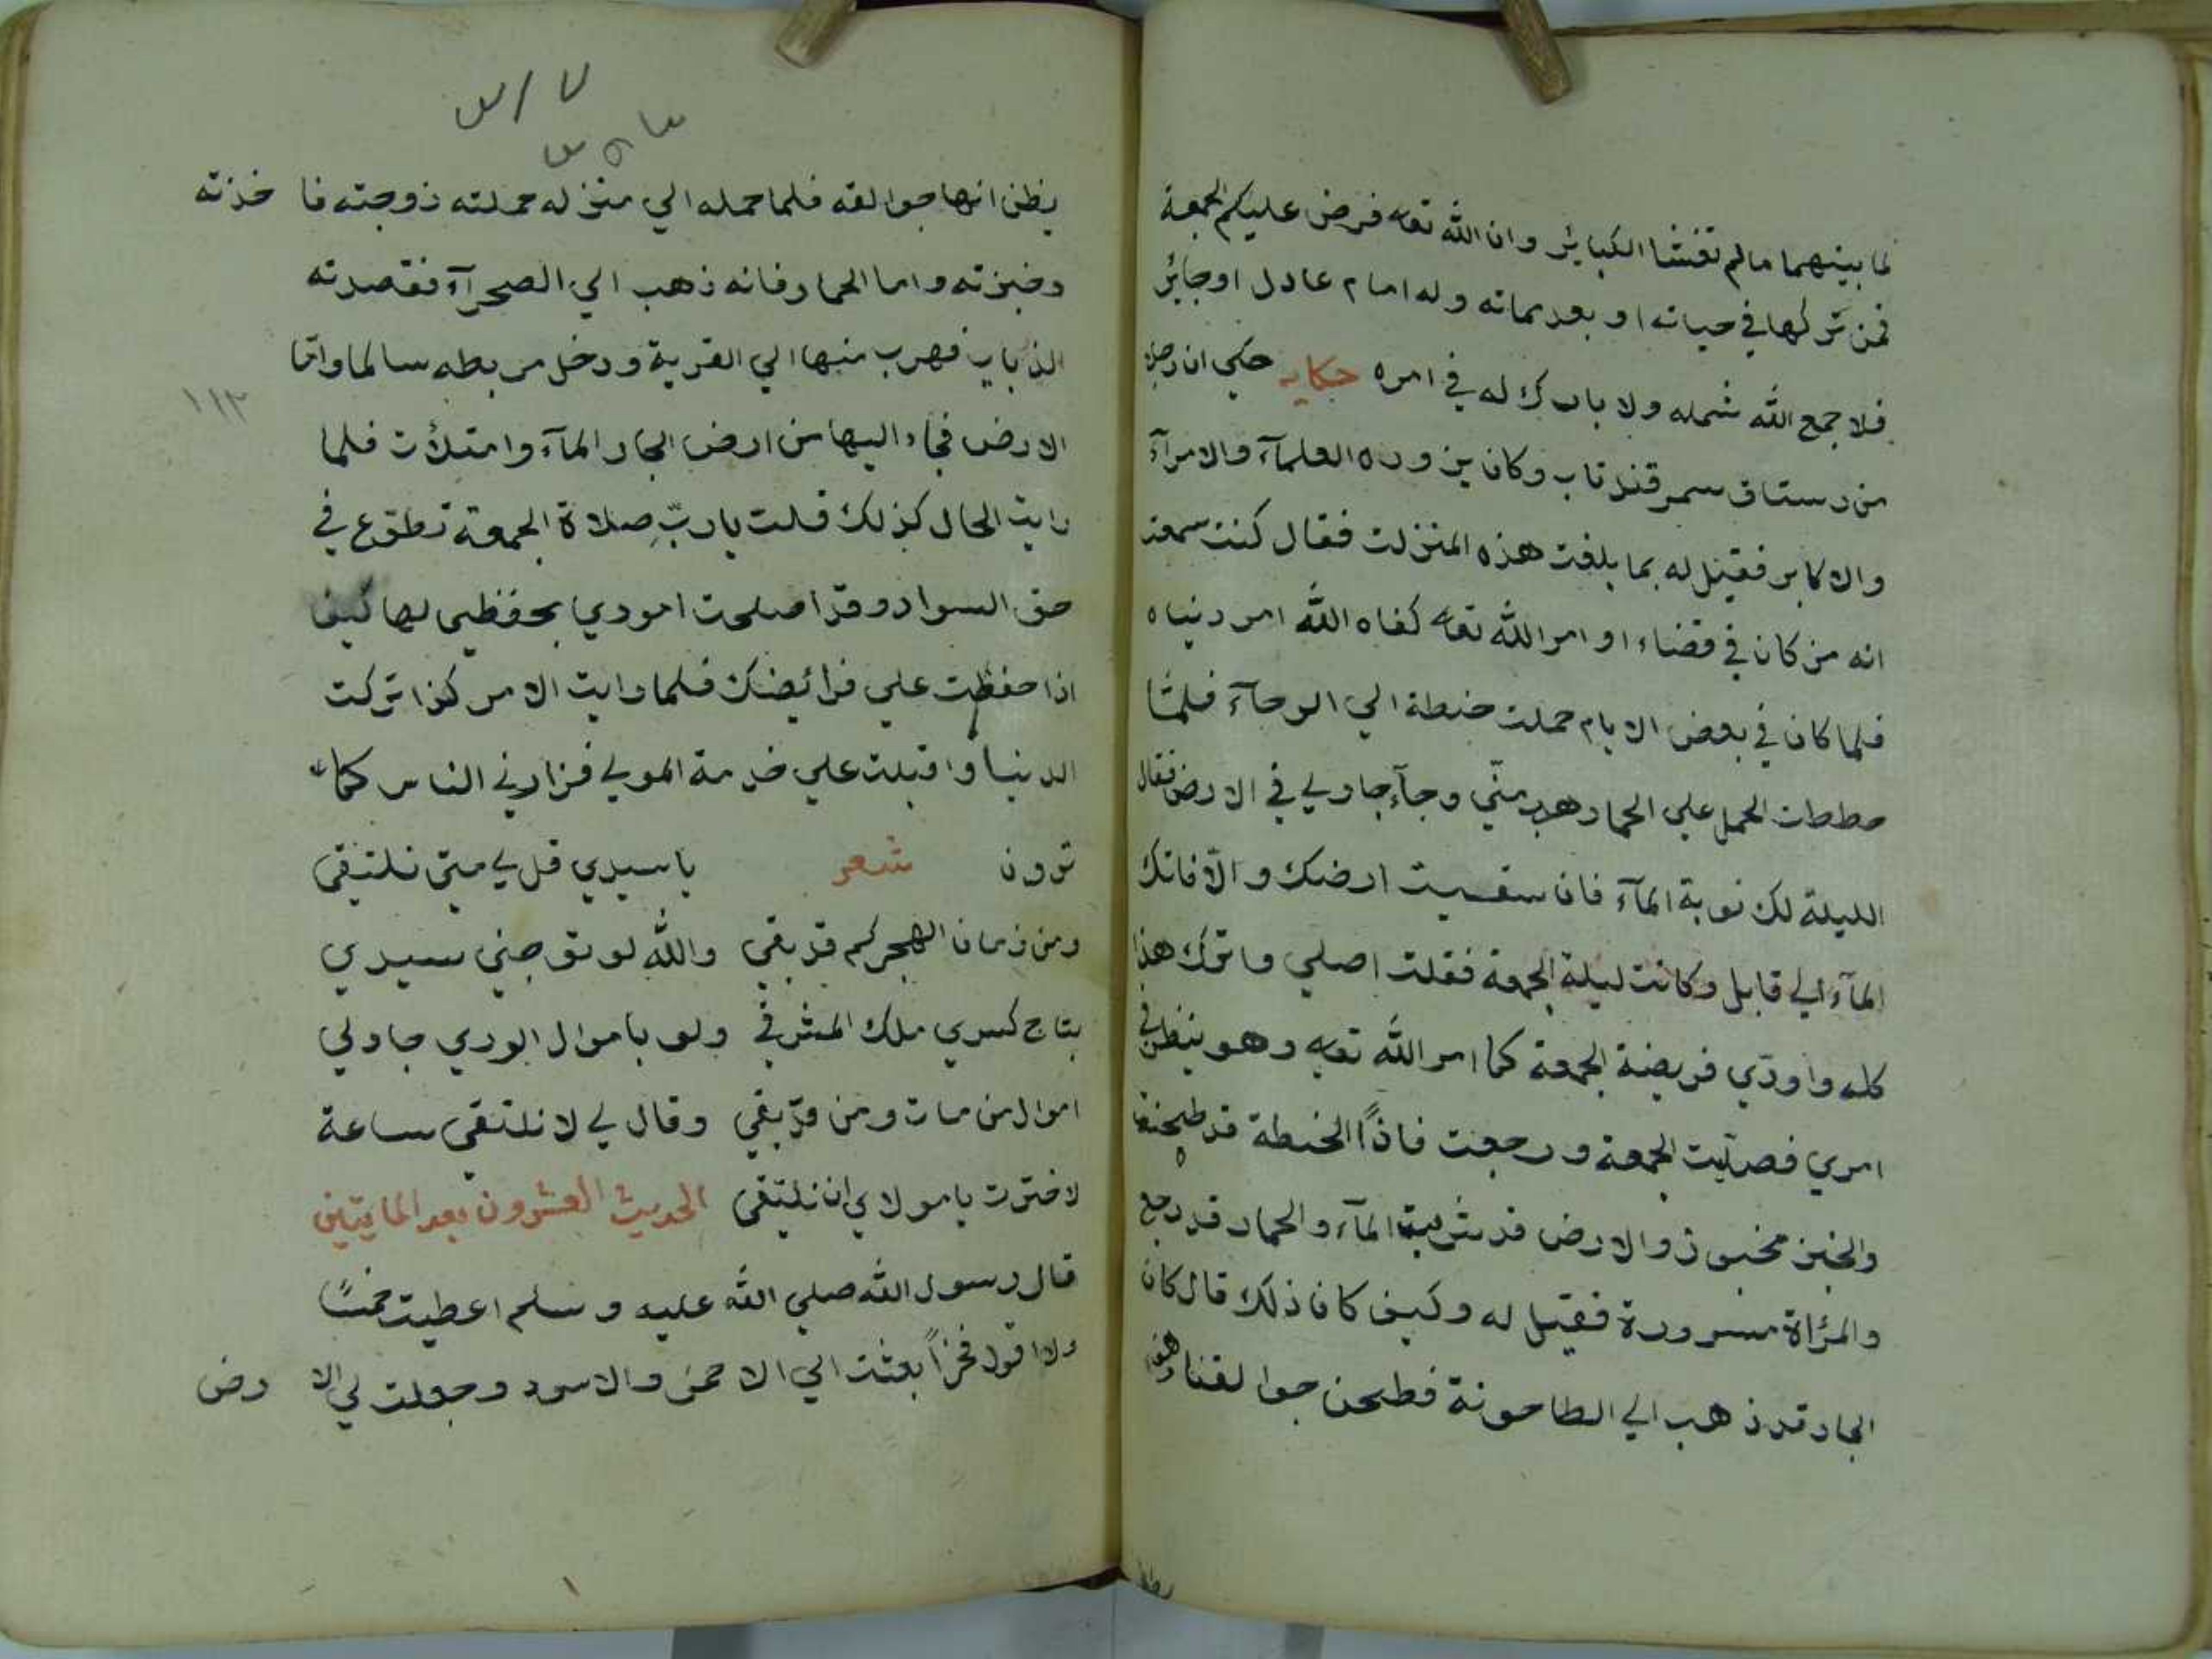 لما بينهما مالم تغشا الكبائر وان الله تعا فرض عليكم الجمعة
فمن تركها في حياته او بعد مماته وله امام عادل اوجائر
فلا جمع الله شمله ولا بارك له في امره حكاية حكي ان رجلا
من رستاق سمرقند تاب وكان يزوره العلمآء والامرآء
والاكابر فقيل له بما بلغت هذه المنزلت فقال كنت سمعت
انه من كان في قضاء اوامر الله تعا كفاه الله امر دنياه
فلما كان في بعض الايام حملت حنطة الي الرحآء فلمّا
حططت الحمل علي الحمار هرب منّي وجآء جار لي في الارض فقال
الليلة لك نوبة المآء فان سقيت ارضك والّا فاتك
المآء الي قابل وكانت ليلة الجمعة فقلت اصلي واترك هذا
كله واودّي فريضة الجمعة كما امر الله تعا وهو ينظر في
امري فصلّيت الجمعة ورجعت فاذاً الحنطة قد طحنت
والخبز مخبوز والارض قد شربت المآء والحمار قد رجع
والمرأة مسرورة فقيل له وكيف كان ذلك قال كان
الجار قد ذهب الي الطاحونة فطحن جوالقنا وهو
يظن
يظن انها جوالقه فلما حمله الي منزله حملته زوجته فا خذته
وخبزته واما الحمار فانه ذهب الي الصحرآء فقصدته
الذياب فهرب منها الي القرية ودخل مربطه سالما وامّا
١١٢
الارض فجاء اليها من ارض الجار المآء وامتلأت فلما
رايت الحال كذلك قلت يا ربّ صلاة الجمعة تطوّع في
حق السواد وقد اصلحت اموري بحفظي لها كيف
اذا حفظت علي فرائيضك فلما رايت الامر كذا تركت
الدنيا واقبلت علي خدمة المولي فزارني الناس كما
ترون شعر يا سيدي قل لي متي نلتقي
ومن زمان الهجر كم قد بقي والله لو توجني سيدي
بتاج كسري ملك المشرقي ولو باموال الوري جاد لي
اموال من مات ومن قد بقي وقال لي لا نلتقي ساعة
لاخترت يا مولاي ان نلتقي الحديث العشرون بعد المايتين
قال رسول الله صلي الله عليه وسلم اعطيت خمسًا
ولا اقول فخراً بعثت الي الاحمر والاسود وجعلت لي الا رض